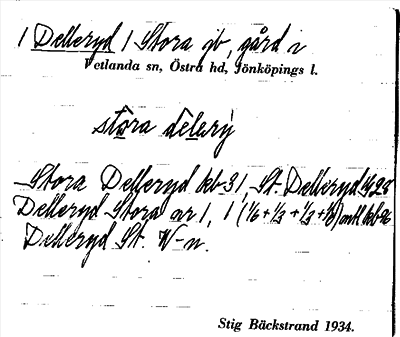 1 Delleryd 1 Stora jb, gård i
Vetlanda sn, Östra hd, Jönköpings l.
stora delery
Stora Delleryd kb 31, St. Delleryd
Delleryd Stora nr 1, 1 (1/6 + 1/3 + 1/3 + 1/6) mtl
Delleryd St. V-n.
Stig Bäckstrand 1934.